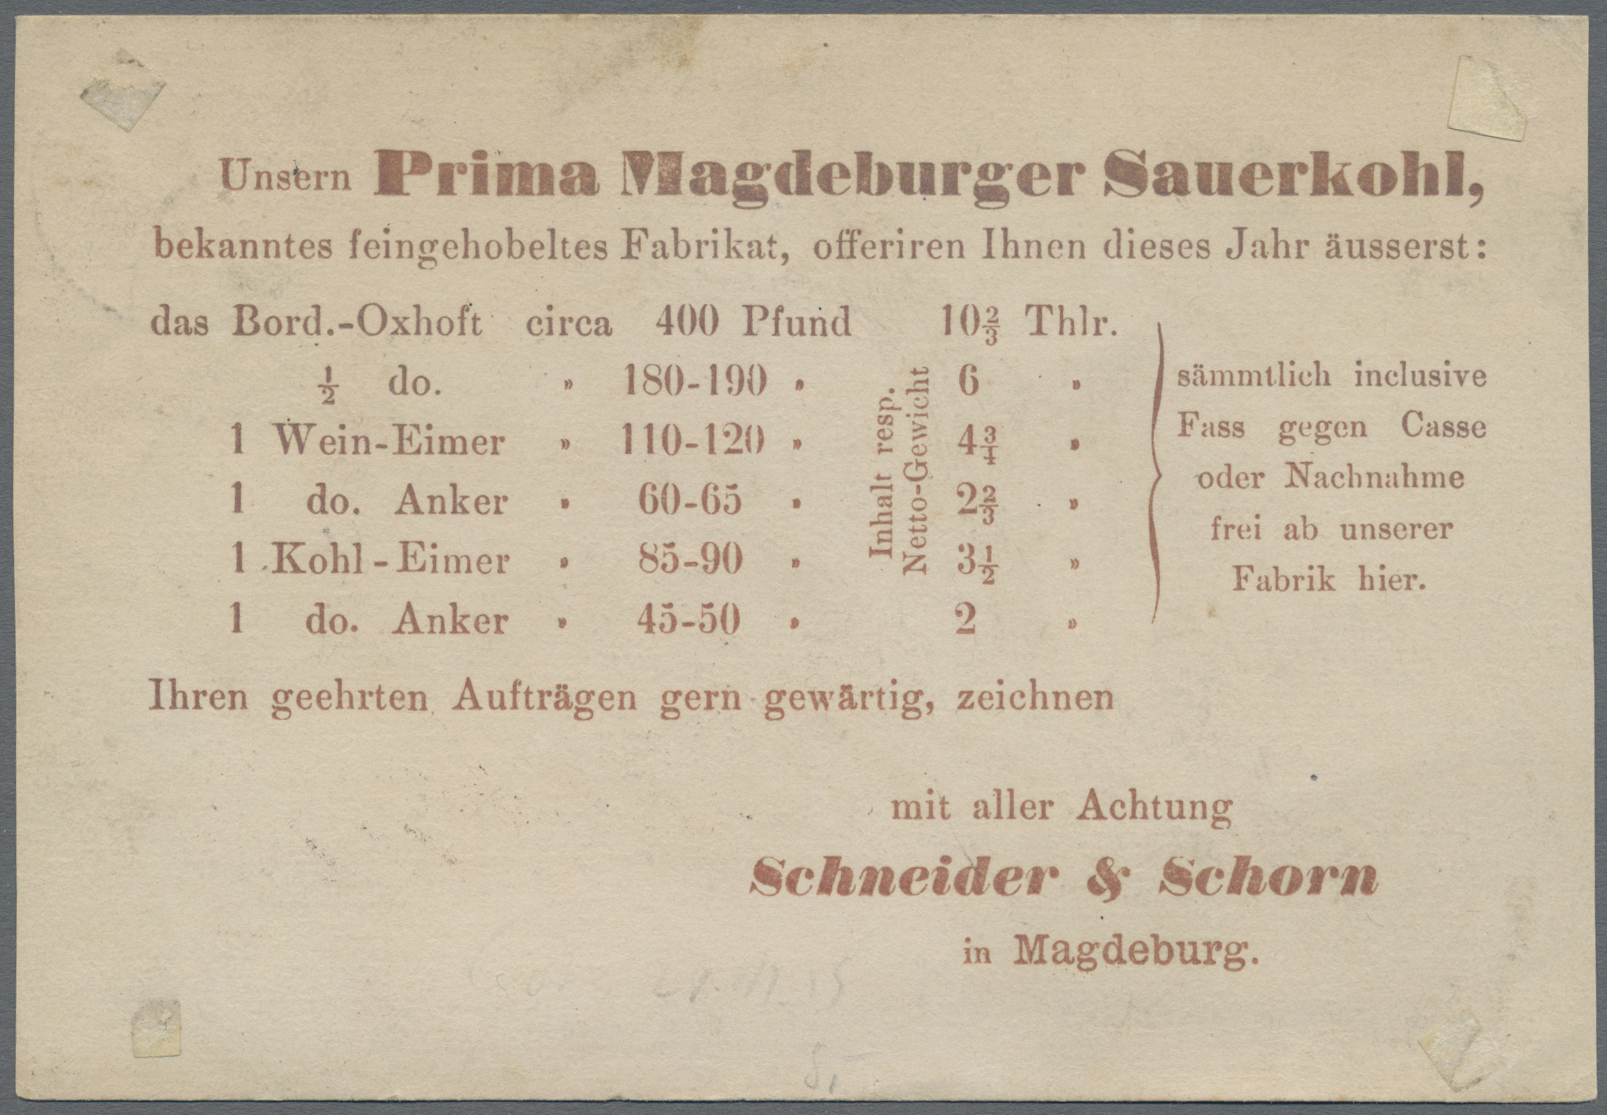 Unsern Prima Magdeburger Sauerkohl,
bekanntes feingehobeltes Fabrikat, offeriren Ihnen dieses Jahr äusserst:
das Bord.-Oxhoft circa 400 Pfund 10⅔ Thlr.
½ do. " 180-190 " 6 "
1 Wein-Eimer " 110-120 " 4¾ "
1 do. Anker " 60-65 " 2⅔ "
1 Kohl-Eimer " 85-90 " 3½ "
1 do. Anker " 45-50 " 2 "
Inhalt resp.
Netto-Gewicht
sämmtlich inclusive
Fass gegen Casse
oder Nachnahme
frei ab unserer
Fabrik hier.
Ihren geehrten Aufträgen gern gewärtig, zeichnen
mit aller Achtung
Schneider & Schorn
in Magdeburg.